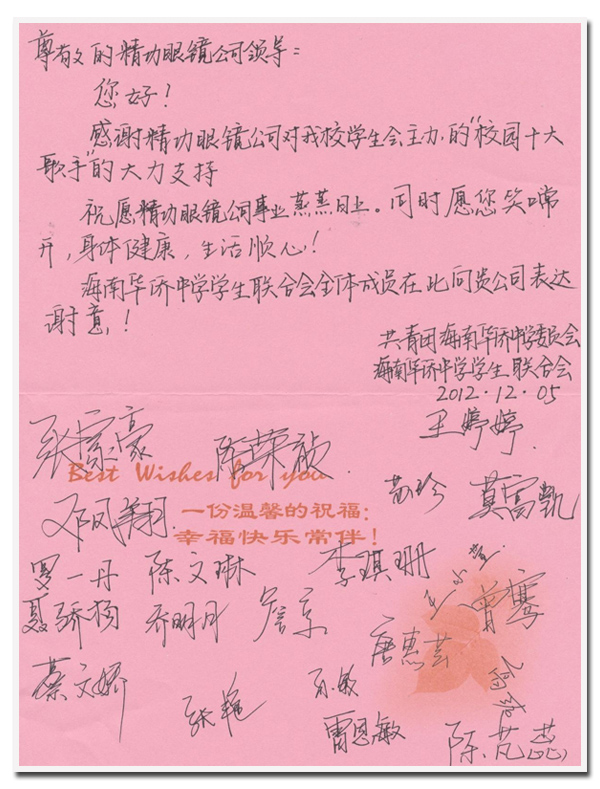 尊敬的精功眼镜公司领导：
您好！
感谢精功眼镜公司对我校学生会主办的“校园十大
歌手”的大力支持
祝愿精功眼镜公司事业蒸蒸日上。同时愿您笑常
开，身体健康，生活顺心！
海南华侨中学学生联合会全体成员在此向贵公司表达
谢意！
共青团海南华侨中学委员会
海南华侨中学学生联合会
2012.12.05
王婷婷
张家豪 陈荣祯
Best Wishes for you
莫富凯
邓凤翔
一份温馨的祝福：
幸福快乐常伴！
罗一丹 陈文琳 李琪珊
聂骄杨 乔明月 詹京 曾骞
唐惠芸
蔡文娇 张艳 孙敏
雷恩敏 陈芃蕊